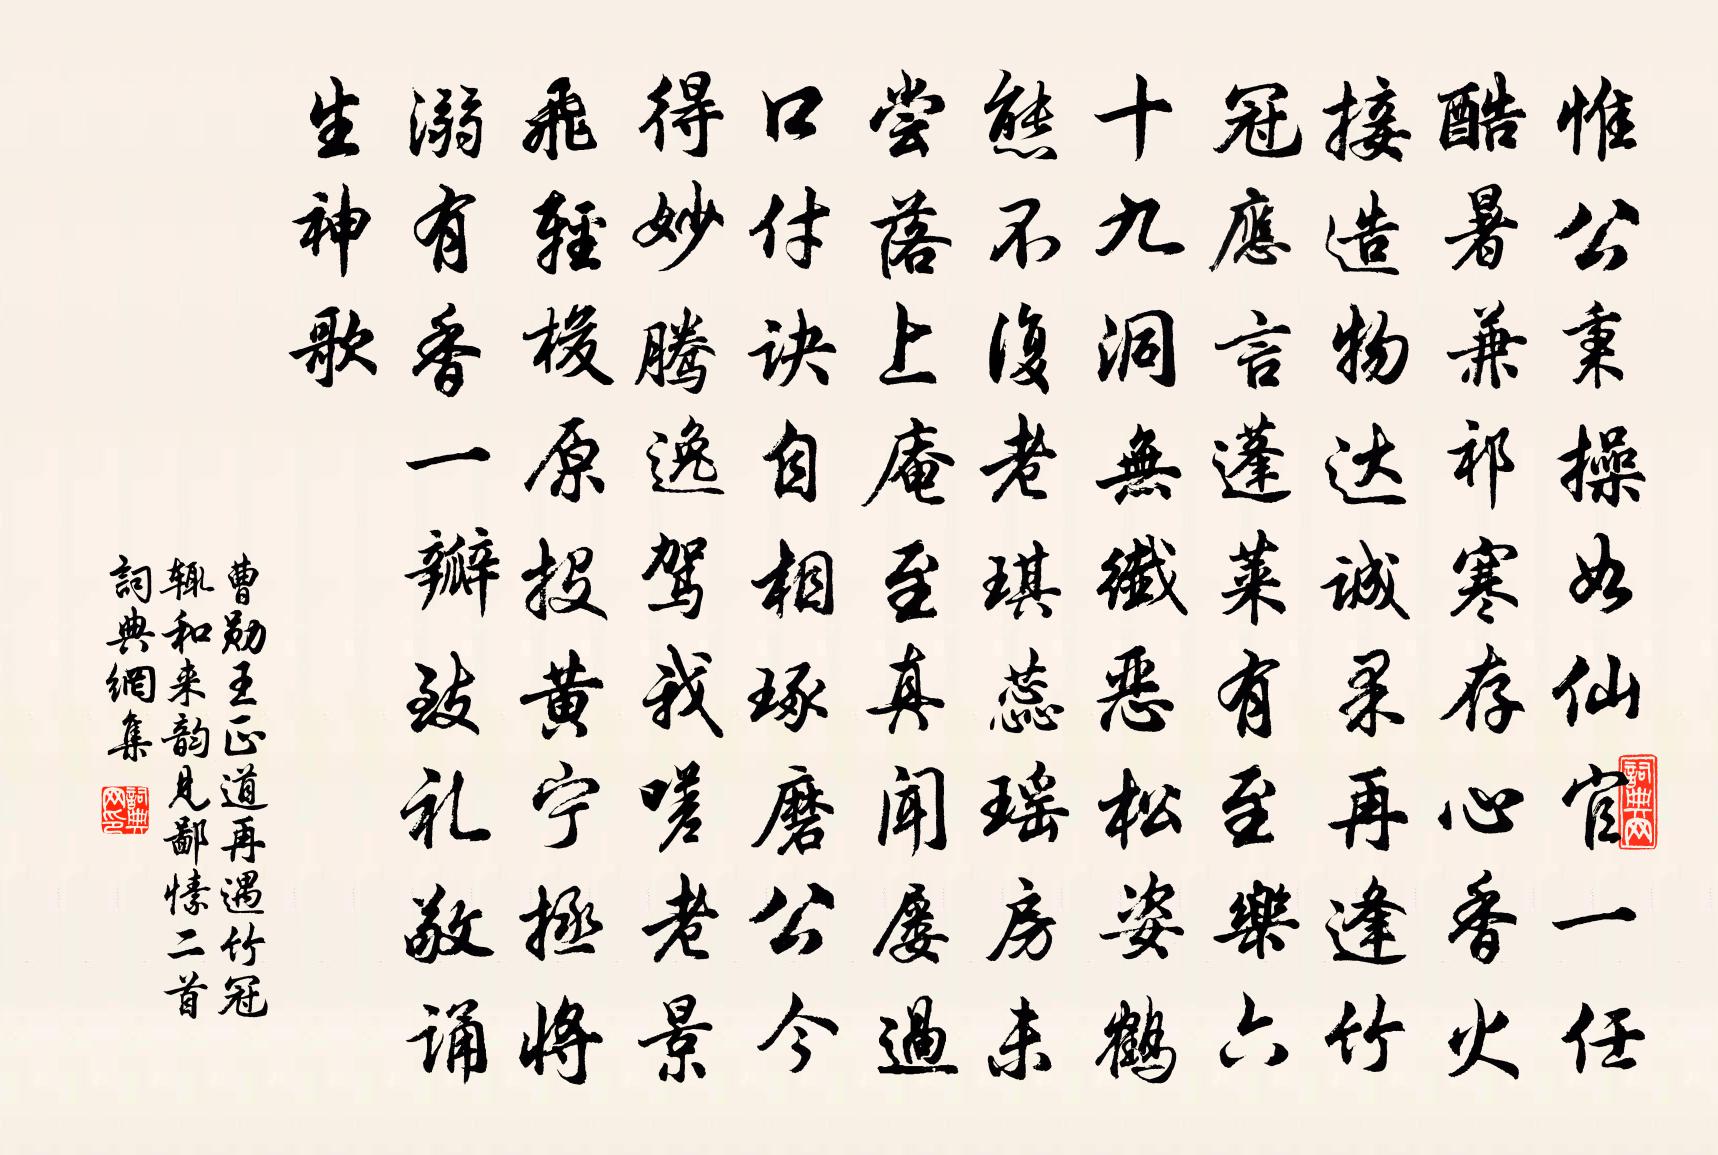 惟公秉操如仙官一任
酷暑兼祁寒存心香火
接造物达诚柔再逢竹
冠應言蓬莱有至樂六
十九洞無纖恶松姿鶴
態不復老琪蕊瑶房未
尝落上庵至真闻屡過
口付诀自相琢磨公今
得妙腾逸驾我嗟老景
飛輕梭原投黄宁拯将
溺有香一瓣致礼敬诵
生神歌
曹勋王正道再遇竹冠
辄和来韵见鄙愫二首
詞典網集
詞典网
詞典网